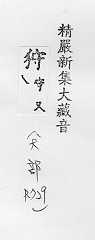 精嚴新集大藏音
狩守又
(犬部